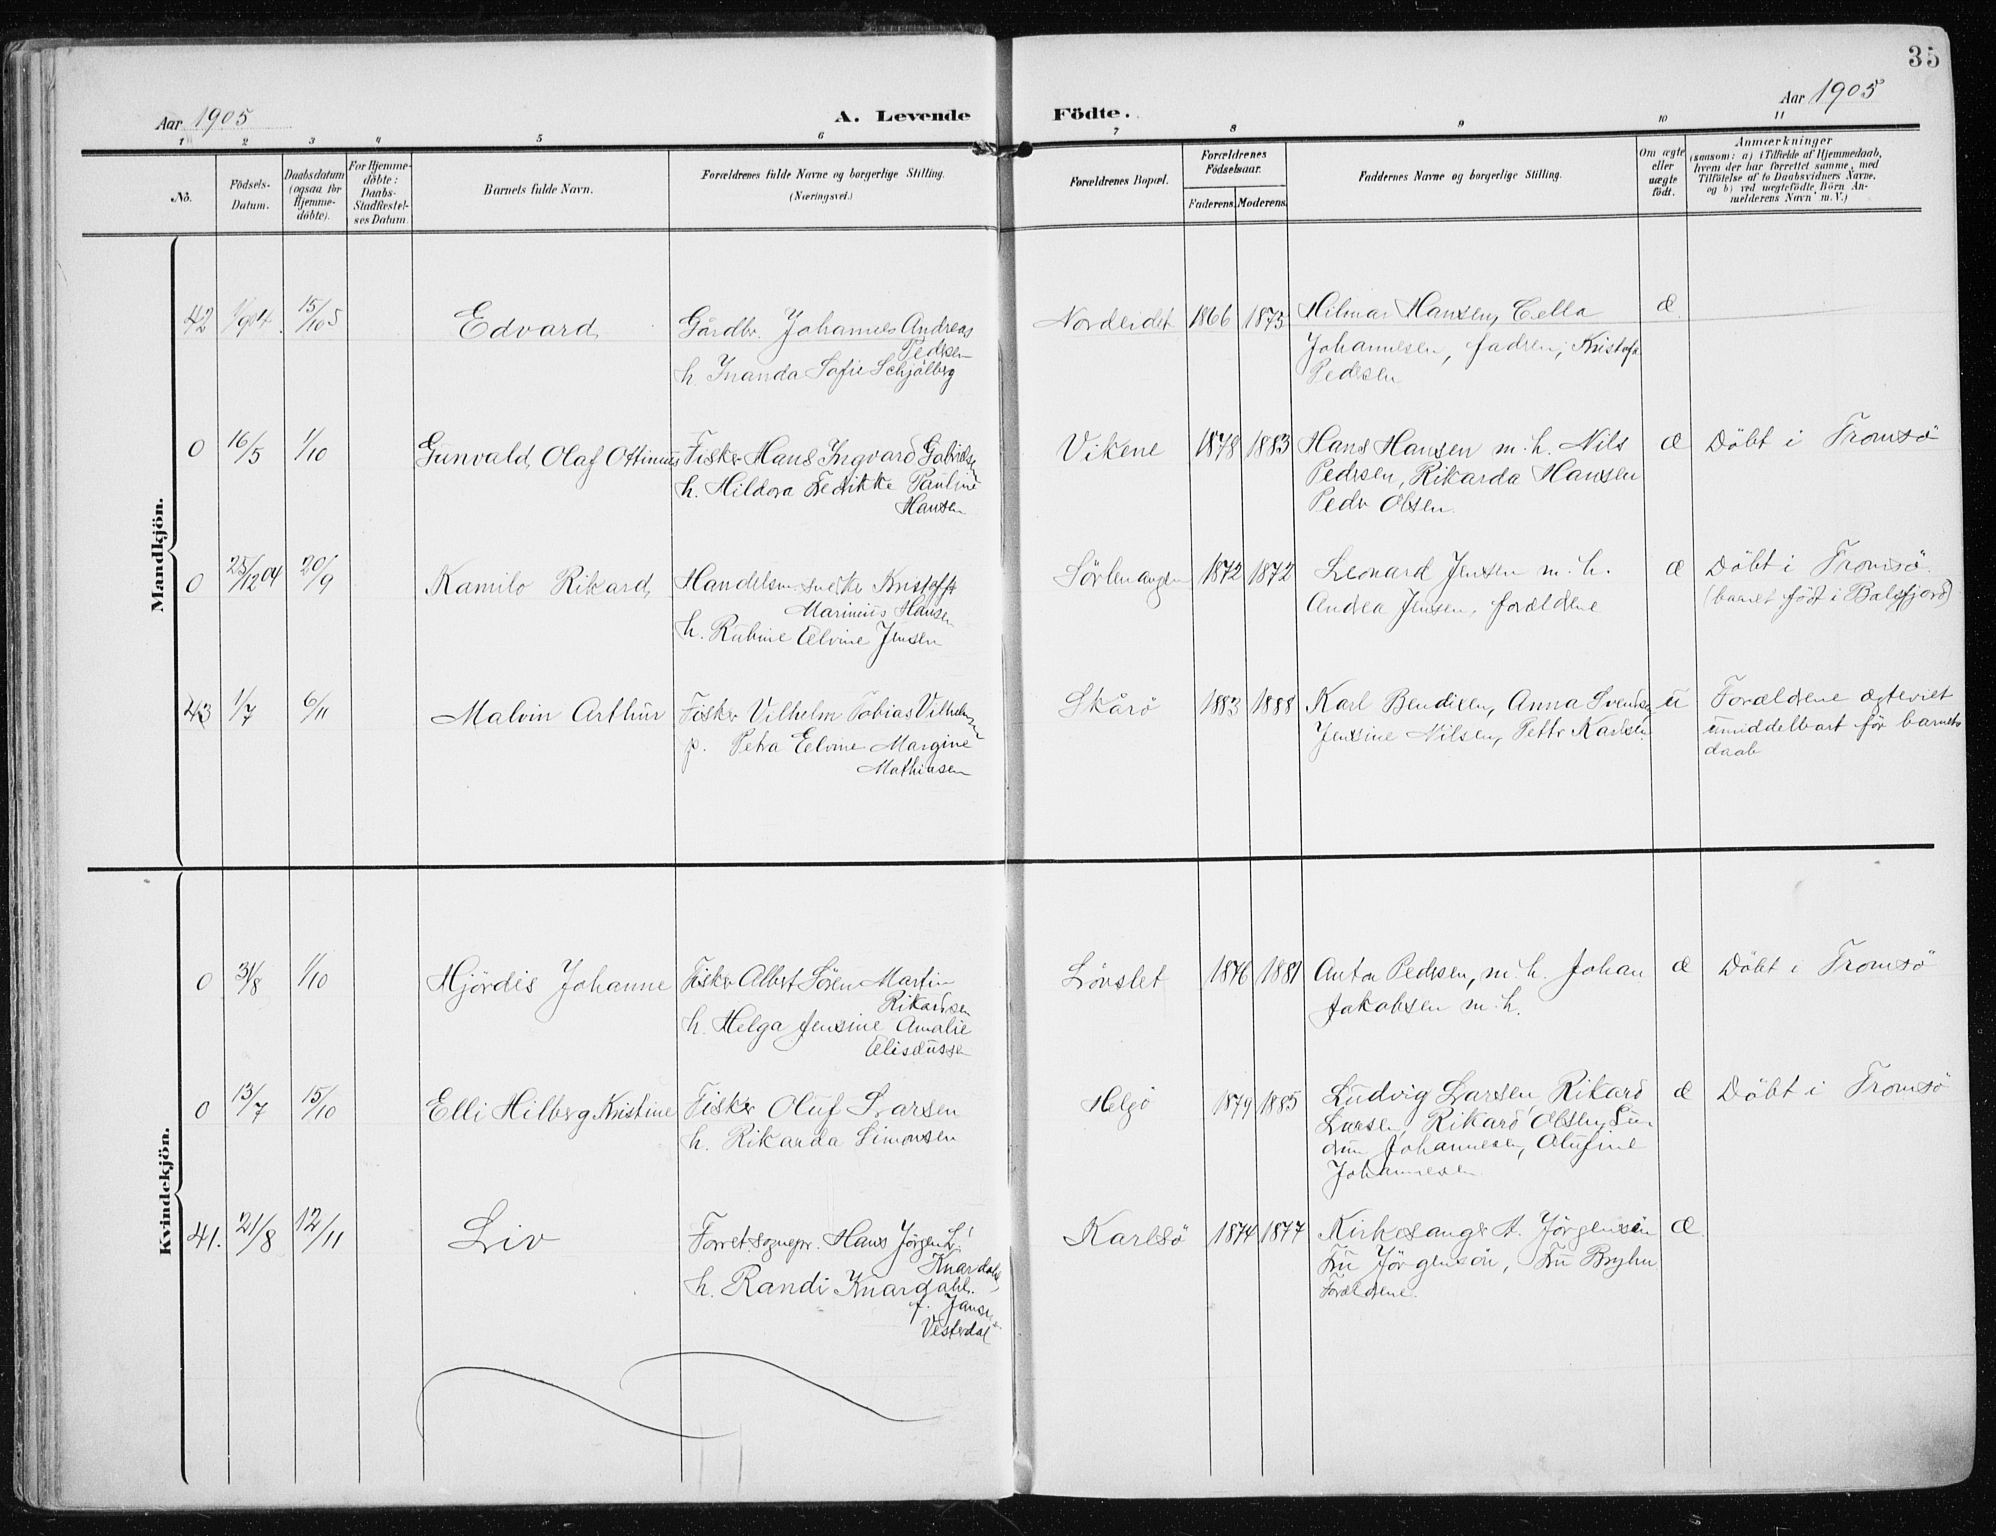 35
Aar 1905
A. Levende Födte.
Aar 1905
1 2 3 4 5 6 7 8 9 10 11
No.
Födsels-Datum.
Daabsdatum (ogsaa for Hjemme-døbte).
For Hjemme-døbte: Daabs-Stadfæstel-ses Datum.
Barnets fulde Navn.
Forældrenes fulde Navne og borgerlige Stilling.
(Næringsvei.)
Forældrenes Bopæl.
Forældrenes Fødselsaar.
Faderens. Moderens.
Faddernes Navne og borgerlige Stilling.
Om ægte eller uægte født.
Anmærkninger
(saasom: a) i Tilfælde af Hjemmedaab,
hvem der har forrettet samme, med
Tilföielse af to Daabsvidners Navne,
og b) ved uægtefödte Börn An-
melderens Navn m. V.)
Mandkjön.
42 15/10 5 Edvard Gårdbr. Johannes Andreas Nordeidet 1866 1873 Hilmar Hansen, Cella æ
Pedersen Johannesen, fadren, Kristofr
h. Inanda Sofie Schjölberg Pedersen
0 16/5 1/10 Gunvald Olaf Ottinius Fisker Hans Ingvard Gabrielsen Vikene 1878 1883 Hans Hansen m. h. Nils æ Döbt i Tromsö
h. Hildora Fredrikke Pauline Pedersen, Rikarda Hansen
Hansen Peder Olsen.
0 25/12 04 20/9 Kamilo Rikard Handelsm snedker Kristoffer Sörlenangen 1872 1872 Leonard Jensen m. h. æ Döbt i Tromsö.
Marinius Hansen Andrea Jensen, forældrene (barnet født i Balsfjord)
h. Rubine Elvine Jensen
43 1/7 6/11 Malvin Arthur Fisker Vilhelm Tobias Vilhelmsen Skårö 1883 1888 Karl Bendixen, Anna Svendsen u Forældrene ægteviet
p. Petra Elvine Margine Jensine Nilsen, Petter Karlsen umiddelbart før barnets
Mathiasen daab
Kvindekjön.
0 31/8 1/10 Hjördis Johanne Fisker Albert Sören Martin Lövslet 1876 1881 Anton Pedersen, m. h. Johan æ Döbt i Tromsö
Rikardsen Jakobsen m. h.
h. Helga Jensine Amalie
Elisæussen
0 13/7 15/10 Elli Hilberg Kristine Fisker Oluf Larsen Helgö 1879 1885 Ludvig Larsen, Rikard æ Döbt i Tromsö
h. Rikarda Simonsen Larsen, Rikard Olsen,
Johannesen, Olufine
Johannesen
41. 21/8 12/11 Liv Forret. sognepr. Hans Jørgen L. Karlsö 1874 1877 Kirkesanger A. Jörgensen æ
Knardahl Fru Jörgensen, Fru Bryhn
h. Randi Knardahl. Forældrene.
f. Janse
Vesterdal